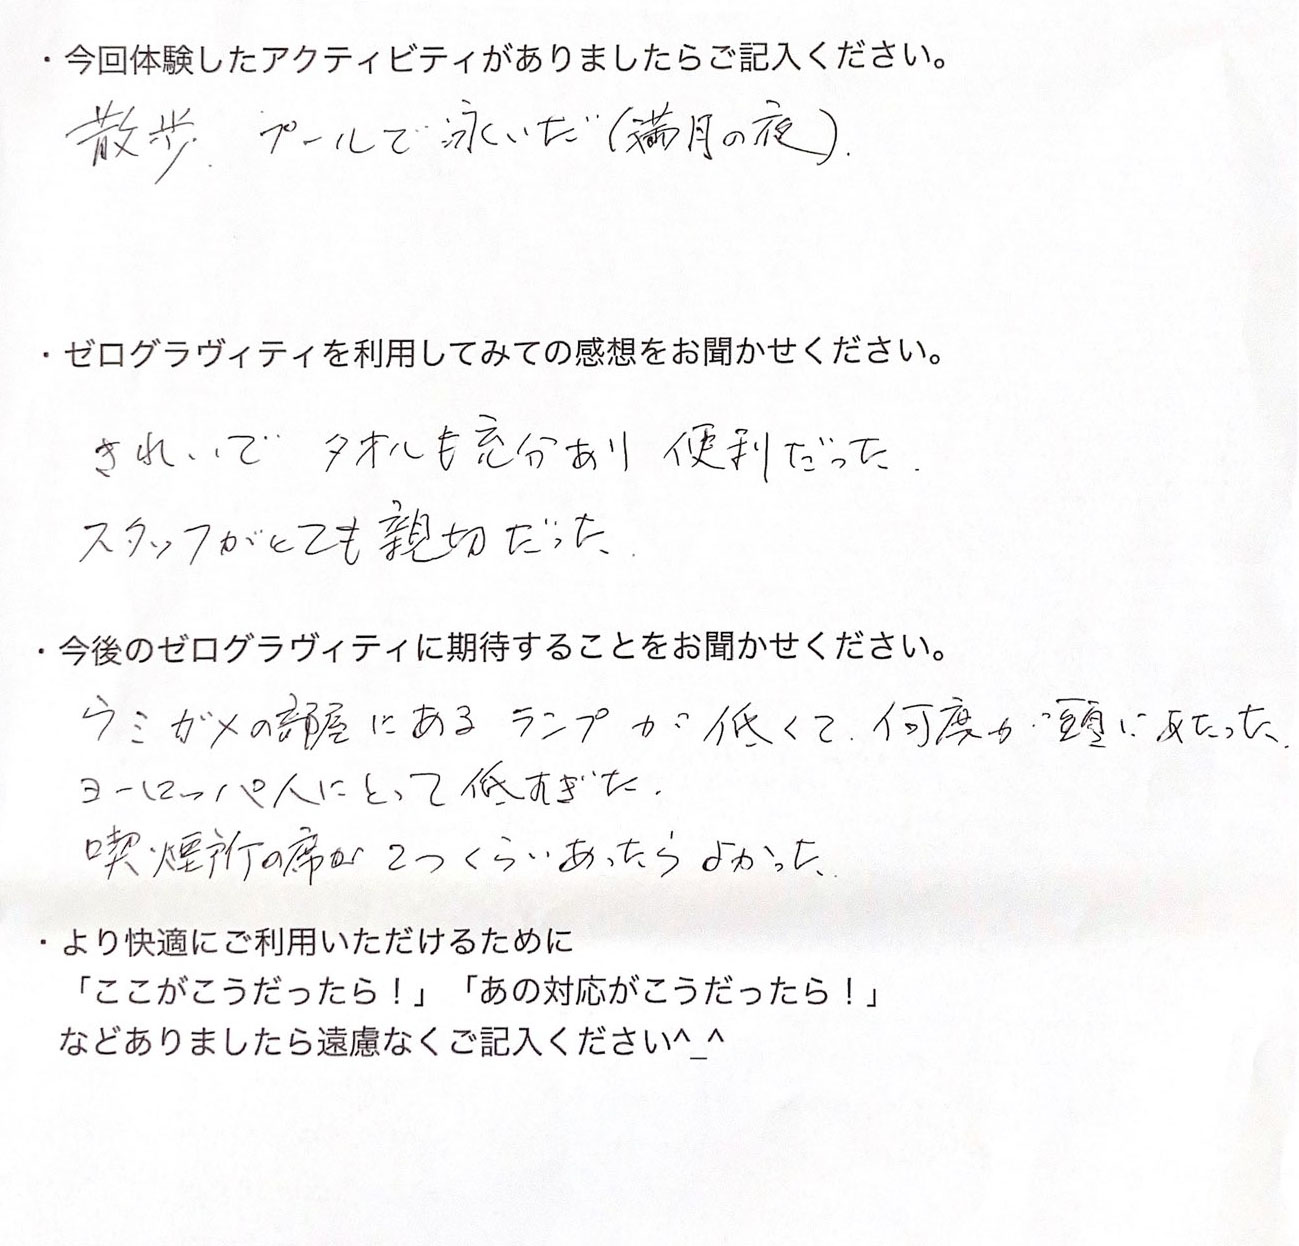 ・今回体験したアクティビティがありましたらご記入ください。
散歩. プールで泳いだ(満月の夜).
・ゼログラヴィティを利用してみての感想をお聞かせください。
きれいで タオルも充分あり 便利だった.
スタッフがとても親切だった.
・今後のゼログラヴィティに期待することをお聞かせください。
ウミガメの部屋にある ランプが 低くて. 何度か頭にあたった.
ヨーロッパ人にとって低すぎた.
喫煙所の席が2つくらいあったらよかった.
・より快適にご利用いただけるために
「ここがこうだったら！」「あの対応がこうだったら！」
などありましたら遠慮なくご記入ください^_^